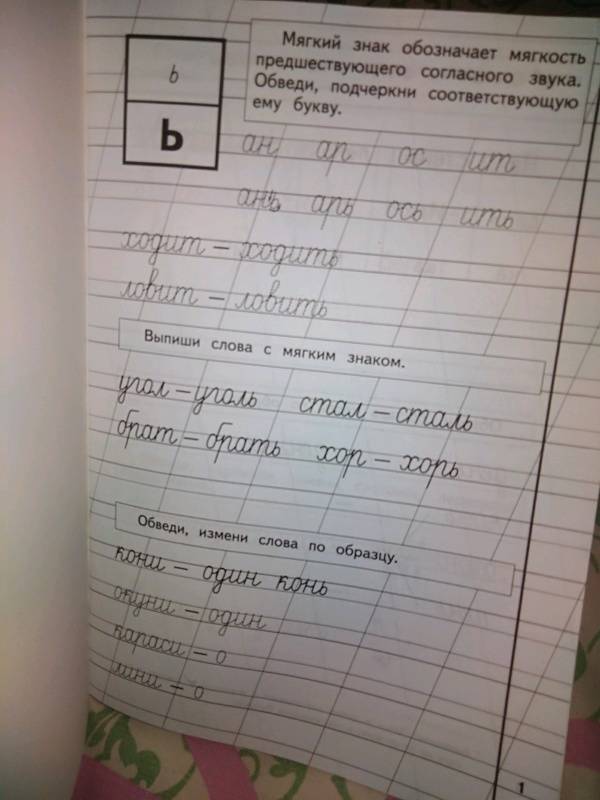 ь
ь
Мягкий знак обозначает мягкость
предшествующего согласного звука.
Обведи, подчеркни соответствующую
ему букву.
ан ар ос ит
ань арь ось ить
ходит – ходить
ловит – ловить
Выпиши слова с мягким знаком.
угол – уголь стал – сталь
брат – брать хор – хорь
Обведи, измени слова по образцу.
кони – один конь
окуни – один
караси – о
лини – о
1